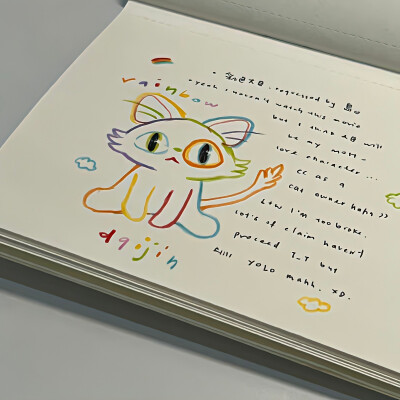 rainbow
daijin
requested by
yeah i haven't watch this movie
but i think will
be my most
love character...
cc as a
cat owner haha >>
btw i'm too broke.
lot's of claim haven't
proceed T_T but
still YOLO mahh. XD.